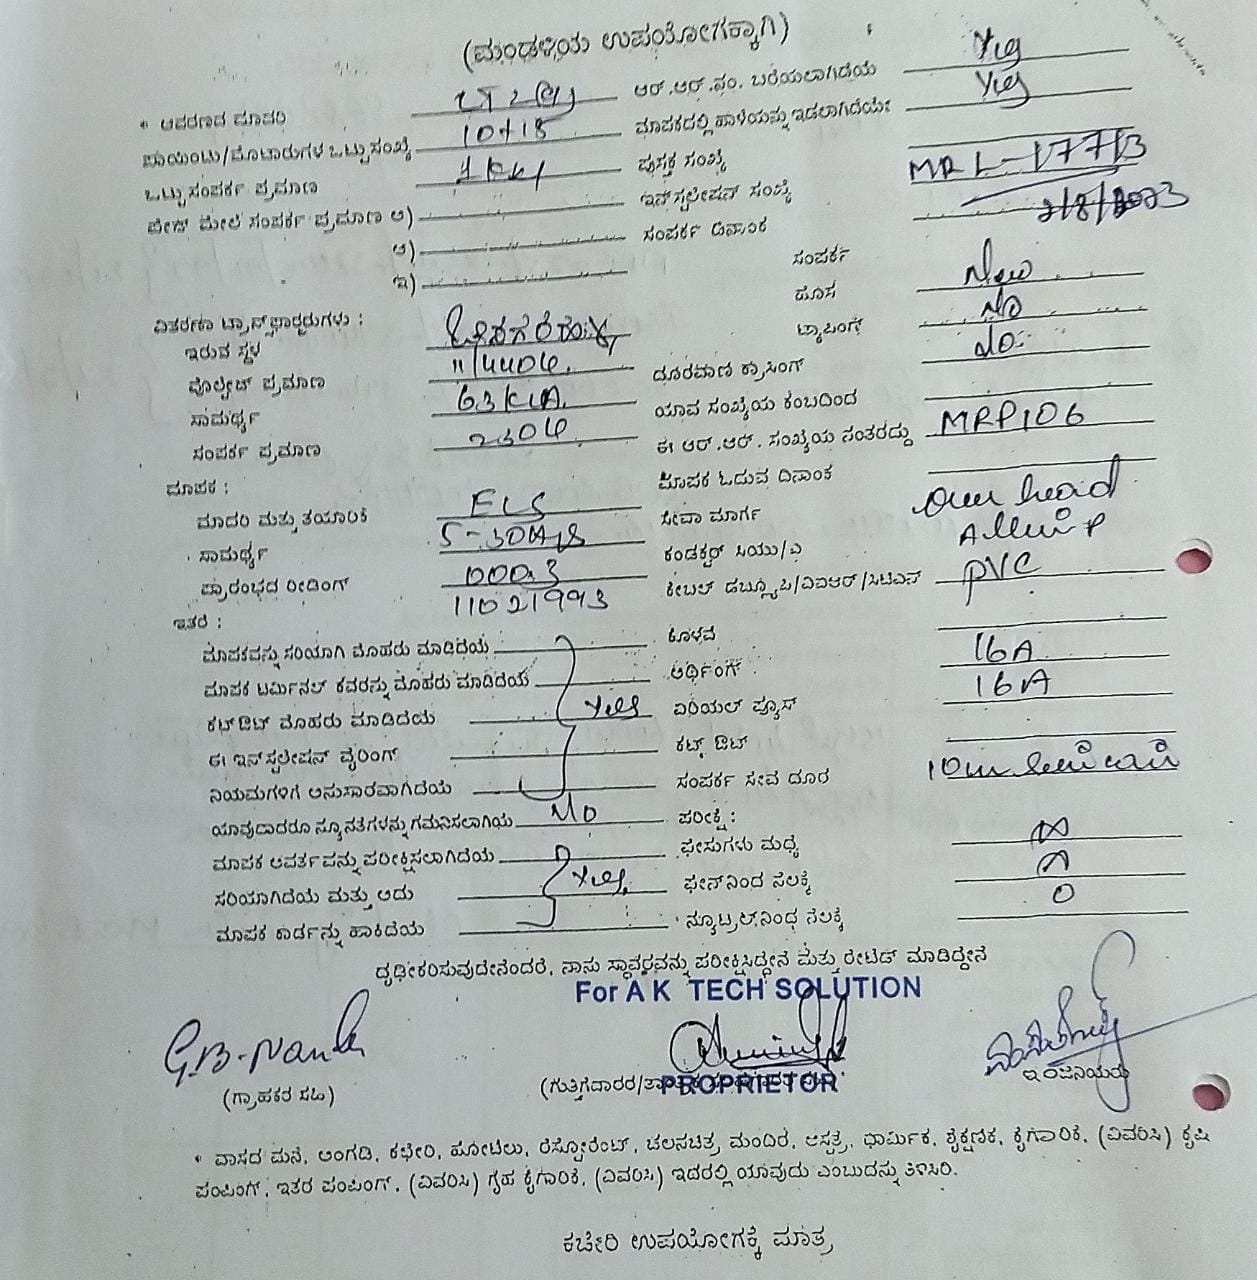 (ಮಂಡಳಿಯ ಉಪಯೋಗಕ್ಕಾಗಿ)
* ಆವರಣದ ಮಾದರಿ LT 2(a) ಆರ್.ಆರ್.ನಂ. ಬರೆಯಲಾಗಿದೆಯೆ Yes
ಪಾಯಿಂಟು/ಮೋಟಾರುಗಳ ಒಟ್ಟು ಸಂಖ್ಯೆ 10+15 ಮಾಪಕದಲ್ಲಿ ಹಾಳೆಯನ್ನು ಇಡಲಾಗಿದೆಯೆ Yes
ಒಟ್ಟು ಸಂಪರ್ಕ ಪ್ರಮಾಣ 1KW ಪುಸ್ತಕ ಸಂಖ್ಯೆ
ಪೇಜ್ ಮೇಲೆ ಸಂಪರ್ಕ ಪ್ರಮಾಣ ಅ) ಇನ್‌ಸ್ಟಲೇಷನ್ ಸಂಖ್ಯೆ MRL-17713
ಆ) ಸಂಪರ್ಕ ದಿನಾಂಕ 2/8/2023
ಇ) ಸಂಪರ್ಕ
ಹೊಸ New
ವಿತರಣಾ ಟ್ರಾನ್ಸ್‌ಫಾರ್ಮರುಗಳು : ಟ್ಯಾಪಿಂಗ್ No
ಇರುವ ಸ್ಥಳ
ವೋಲ್ಟೇಜ್ ಪ್ರಮಾಣ 11/440V. ದೂರವಾಣಿ ಕ್ರಾಸಿಂಗ್ No
ಸಾಮರ್ಥ್ಯ 63KVA. ಯಾವ ಸಂಖ್ಯೆಯ ಕಂಬದಿಂದ
ಸಂಪರ್ಕ ಪ್ರಮಾಣ 230V ಈ ಆರ್.ಆರ್. ಸಂಖ್ಯೆಯ ನಂತರದ್ದು MRP106
ಮಾಪಕ : ಮಾಪಕ ಓದುವ ದಿನಾಂಕ
ಮಾದರಿ ಮತ್ತು ತಯಾರಿಕೆ ELS ಸೇವಾ ಮಾರ್ಗ Over head
ಸಾಮರ್ಥ್ಯ 5-30A ಕಂಡಕ್ಟರ್ ಸಿಯು/ಎ
ಪ್ರಾರಂಭದ ರೀಡಿಂಗ್ 000.3 ಕೇಬಲ್ ಡಬ್ಲ್ಯೂಪಿ/ವಿಐಆರ್/ಸಿಟಿಎಸ್ PVC
11021993
ಇತರೆ :
ಮಾಪಕವನ್ನು ಸರಿಯಾಗಿ ಮೊಹರು ಮಾಡಿದೆಯೆ ಕೊಳವೆ
ಮಾಪಕ ಟರ್ಮಿನಲ್ ಕವರನ್ನು ಮೊಹರು ಮಾಡಿದೆಯೆ ಅರ್ಥಿಂಗ್ 16A
ಕಟ್‌ಔಟ್ ಮೊಹರು ಮಾಡಿದೆಯೆ Yes ಏರಿಯಲ್ ಫ್ಯೂಸ್ 16A
ಈ ಇನ್‌ಸ್ಟಲೇಷನ್ ವೈರಿಂಗ್ ಕಟ್ ಔಟ್
ನಿಯಮಗಳಿಗೆ ಅನುಸಾರವಾಗಿದೆಯೆ ಸಂಪರ್ಕ ಸೇವೆ ದೂರ
ಯಾವುದಾದರೂ ನ್ಯೂನತೆಗಳನ್ನು ಗಮನಿಸಲಾಗಿಯೆ No ಪರೀಕ್ಷೆ :
ಮಾಪಕ ಆವರ್ತವನ್ನು ಪರೀಕ್ಷಿಸಲಾಗಿದೆಯೆ ಫೇಸುಗಳು ಮಧ್ಯೆ
ಸರಿಯಾಗಿದೆಯೆ ಮತ್ತು ಅದು Yes. ಫೇಸ್‌ನಿಂದ ನೆಲಕ್ಕೆ
ಮಾಪಕ ಕಾರ್ಡನ್ನು ಹಾಕಿದೆಯೆ ನ್ಯೂಟ್ರಲ್‌ನಿಂಧ ನೆಲಕ್ಕೆ 0
ದೃಢೀಕರಿಸುವುದೇನೆಂದರೆ, ನಾನು ಸ್ಥಾವರವನ್ನು ಪರೀಕ್ಷಿಸಿದ್ದೇನೆ ಮತ್ತು ರೇಟೆಡ್ ಮಾಡಿದ್ದೇನೆ
For A K TECH SOLUTION
G.B. Nanda
(ಗ್ರಾಹಕರ ಸಹಿ) (ಗುತ್ತಿಗೆದಾರರ/ PROPRIETOR ಇಂಜಿನಿಯರು
* ವಾಸದ ಮನೆ, ಅಂಗಡಿ, ಕಛೇರಿ, ಹೋಟೆಲು, ರೆಸ್ಟೋರೆಂಟ್, ಚಲನಚಿತ್ರ ಮಂದಿರ, ಆಸ್ಪತ್ರೆ, ಧಾರ್ಮಿಕ, ಶೈಕ್ಷಣಿಕ, ಕೈಗಾರಿಕೆ, (ವಿವರಿಸಿ) ಕೃಷಿ
ಪಂಪಿಂಗ್, ಇತರ ಪಂಪಿಂಗ್, (ವಿವರಿಸಿ) ಗೃಹ ಕೈಗಾರಿಕೆ, (ವಿವರಿಸಿ) ಇದರಲ್ಲಿ ಯಾವುದು ಎಂಬುದನ್ನು ತಿಳಿಸಿರಿ.
ಕಚೇರಿ ಉಪಯೋಗಕ್ಕೆ ಮಾತ್ರ